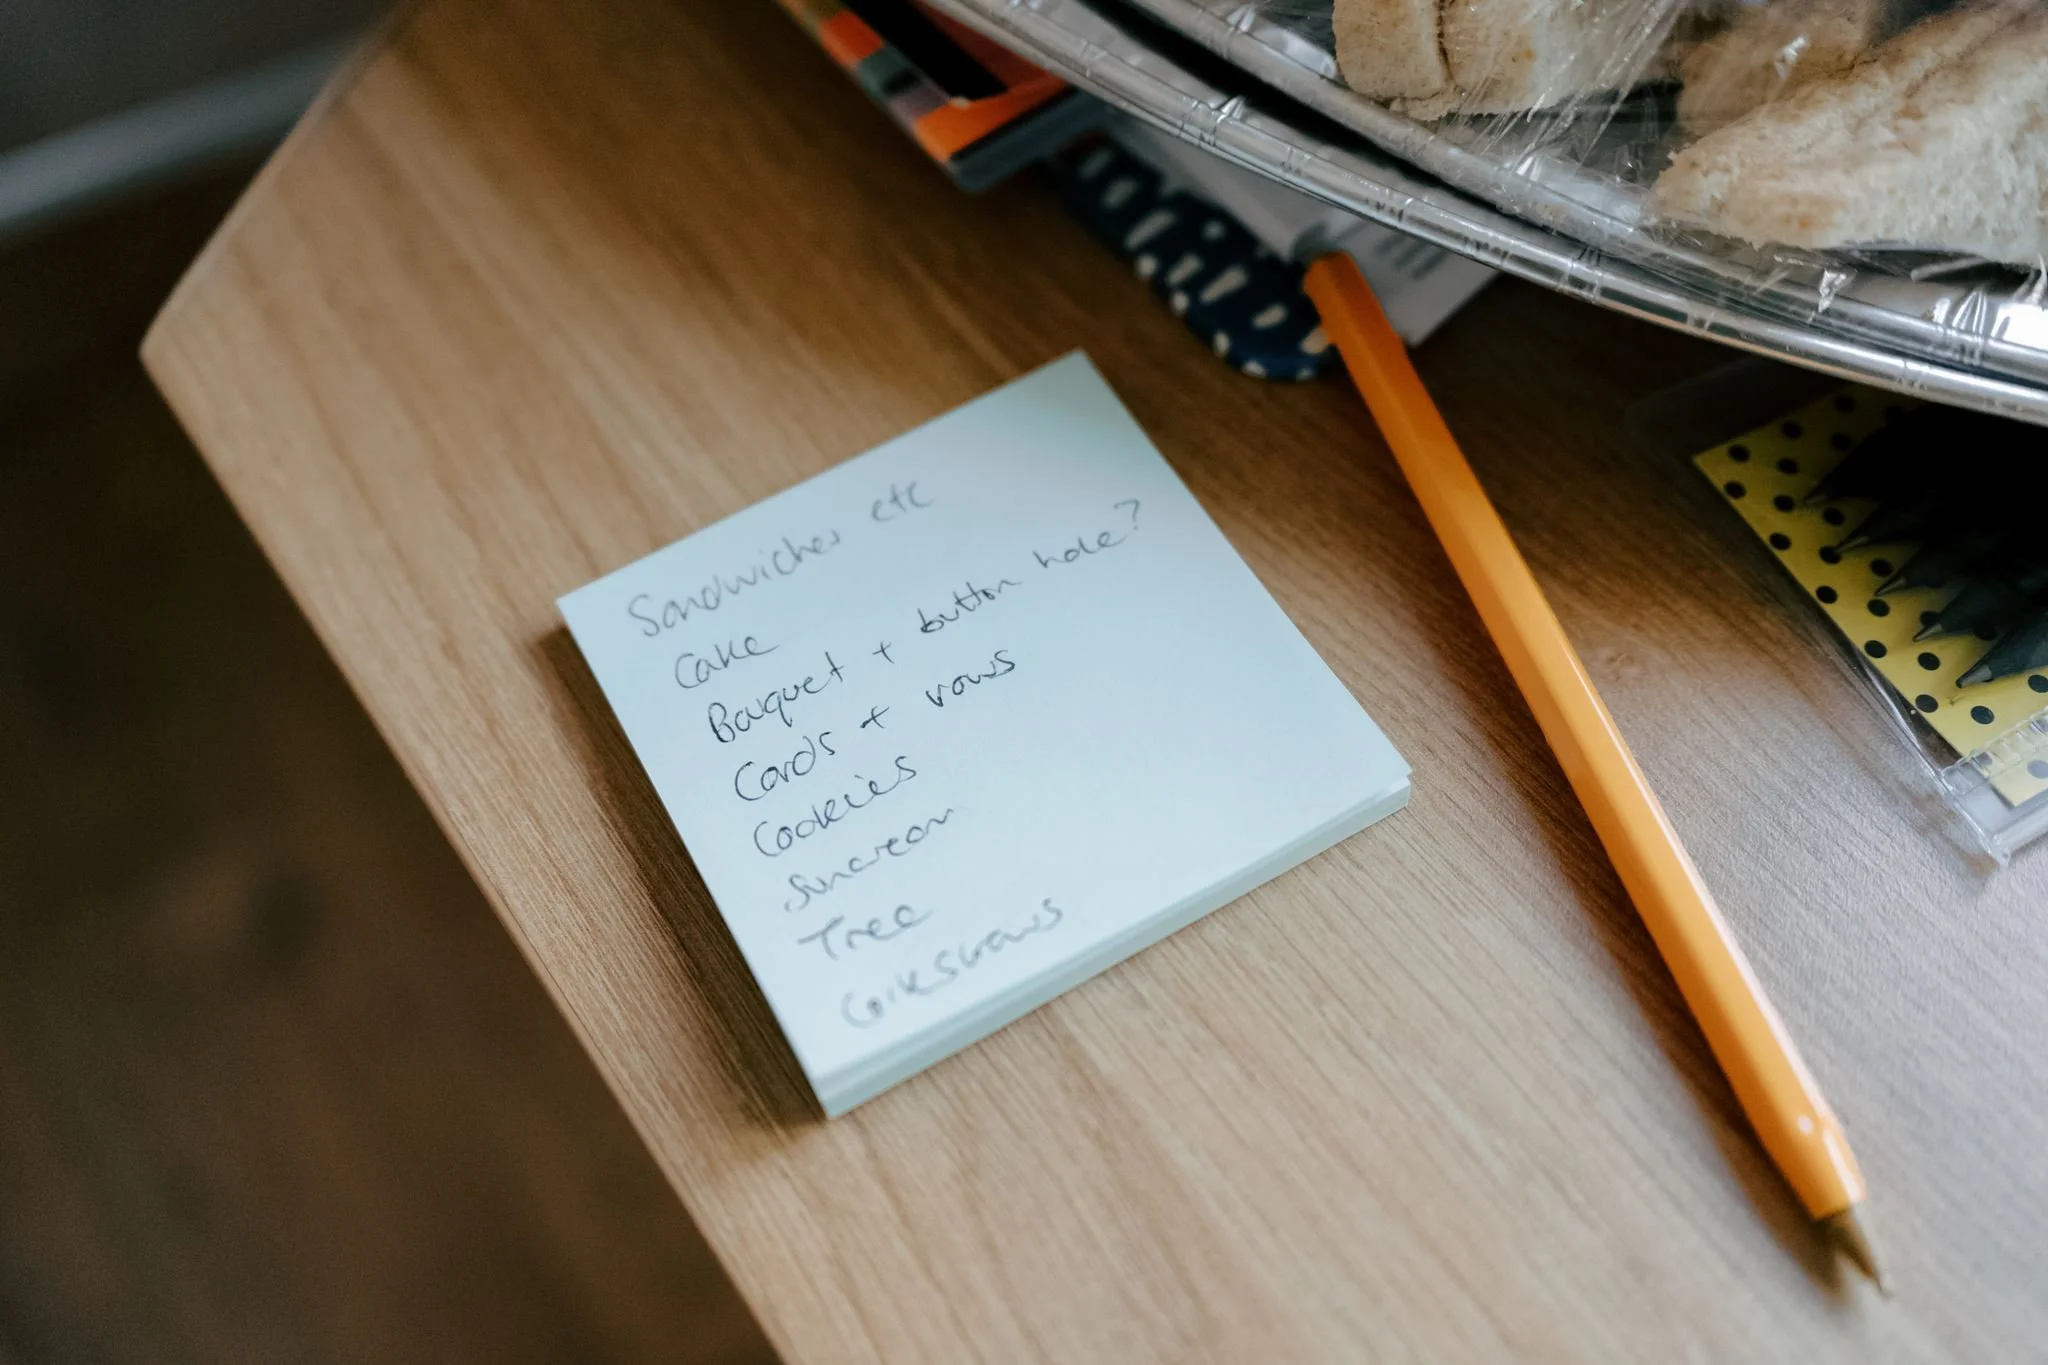 Sandwiches etc
Cake
Bouquet + button hole?
Cards + vows
Cookies
Suncream
Tree
Corkscrews